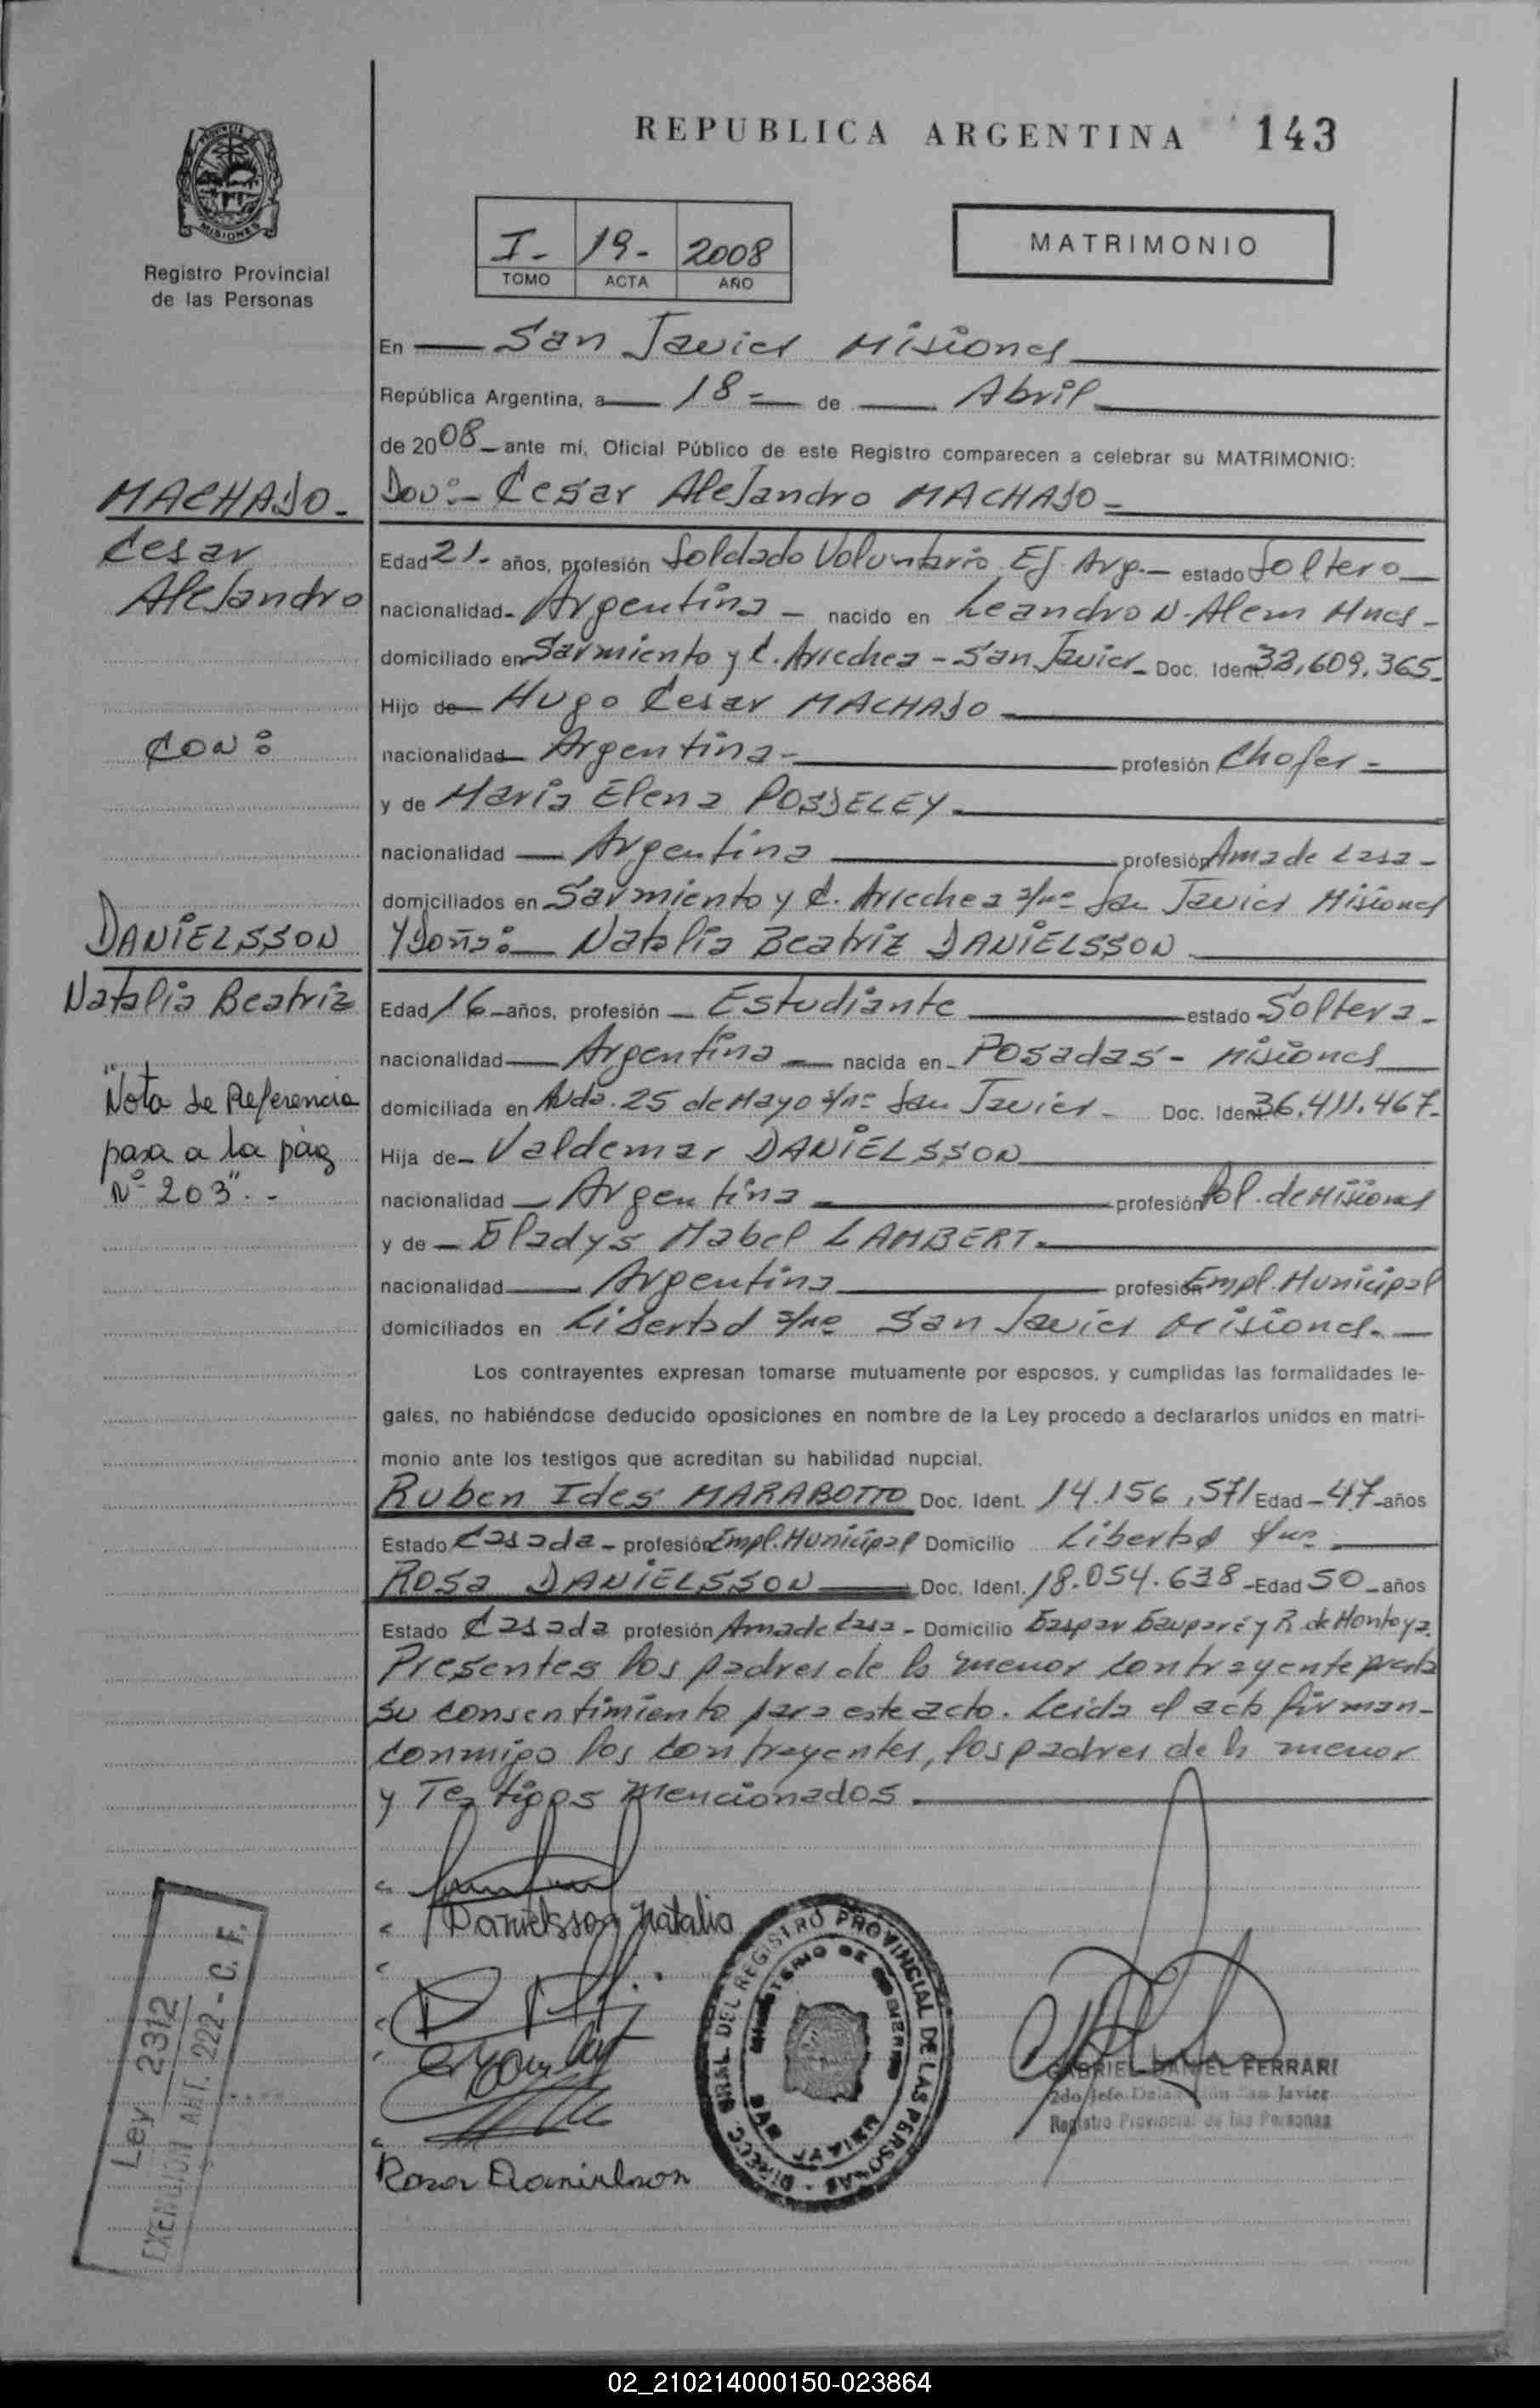 REPUBLICA ARGENTINA 143
MISIONES
Registro Provincial
de las Personas
I- 19- 2008
TOMO ACTA AÑO
MATRIMONIO
En San Javier Misiones
República Argentina, a 18 = de Abril
de 2008 ante mí, Oficial Público de este Registro comparecen a celebrar su MATRIMONIO:
MACHADO.-
Cesar
Alejandro
CON:
DANIELSSON
Natalia Beatriz
"Nota de Referencia
pasa a la pág
Nº 203".-
Don:- Cesar Alejandro MACHADO=
Edad 21- años, profesión Soldado Voluntario Ej. Arg.- estado Soltero
nacionalidad- Argentina - nacido en Leandro N. Alem Mnes-
domiciliado en Sarmiento y C. Arrechea - San Javier- Doc. Ident. 33,609.365-
Hijo de Hugo Cesar MACHADO
nacionalidad Argentina- profesión Chofer=
y de Maria Elena POSDELEY-
nacionalidad Argentina profesión Ama de Casa-
domiciliados en Sarmiento y C. Arrechea s/nº San Javier Misiones
Y Doña:- Natalia Beatriz DANIELSSON
Edad 16 años, profesión Estudiante estado Soltera-
nacionalidad Argentina nacida en- Posadas- Misiones
domiciliada en Avda. 25 de Mayo s/nº San Javier- Doc. Ident. 36.411.467-
Hija de- Valdemar DANIELSSON
nacionalidad Argentina profesión Pol. de Misiones
y de Gladys Mabel LAMBERT-
nacionalidad Argentina profesión Empl. Municipal
domiciliados en Libertad s/nº San Javier Misiones.-
Los contrayentes expresan tomarse mutuamente por esposos, y cumplidas las formalidades le-
gales, no habiéndose deducido oposiciones en nombre de la Ley procedo a declararlos unidos en matri-
monio ante los testigos que acreditan su habilidad nupcial.
Ruben Ides MARABOTTO Doc. Ident. 14.156,571 Edad 47 años
Estado Casada- profesión Empl. Municipal Domicilio Libertad s/nº
ROSA DANIELSSON Doc. Ident. 18.054.638 Edad 50 años
Estado Casada profesión Ama de Casa - Domicilio Gaspar Guaparé y R. de Montoya.
Presentes los padres de la menor contrayente presta
su consentimiento para este acto. Leida el acta firman-
conmigo los contrayentes, los padres de la menor
y Testigos mencionados.
Danielsson Natalia
Rosa Danielsson
DIRECC. GRAL. DEL REGISTRO PROVINCIAL DE LAS PERSONAS
MINISTERIO DE GOBIERNO
GABRIEL DANIEL FERRARI
2do Jefe Delegación San Javier
Registro Provincial de las Personas
Ley 2312
EXENCION ART. 222 - C. F.
02_210214000150-023864